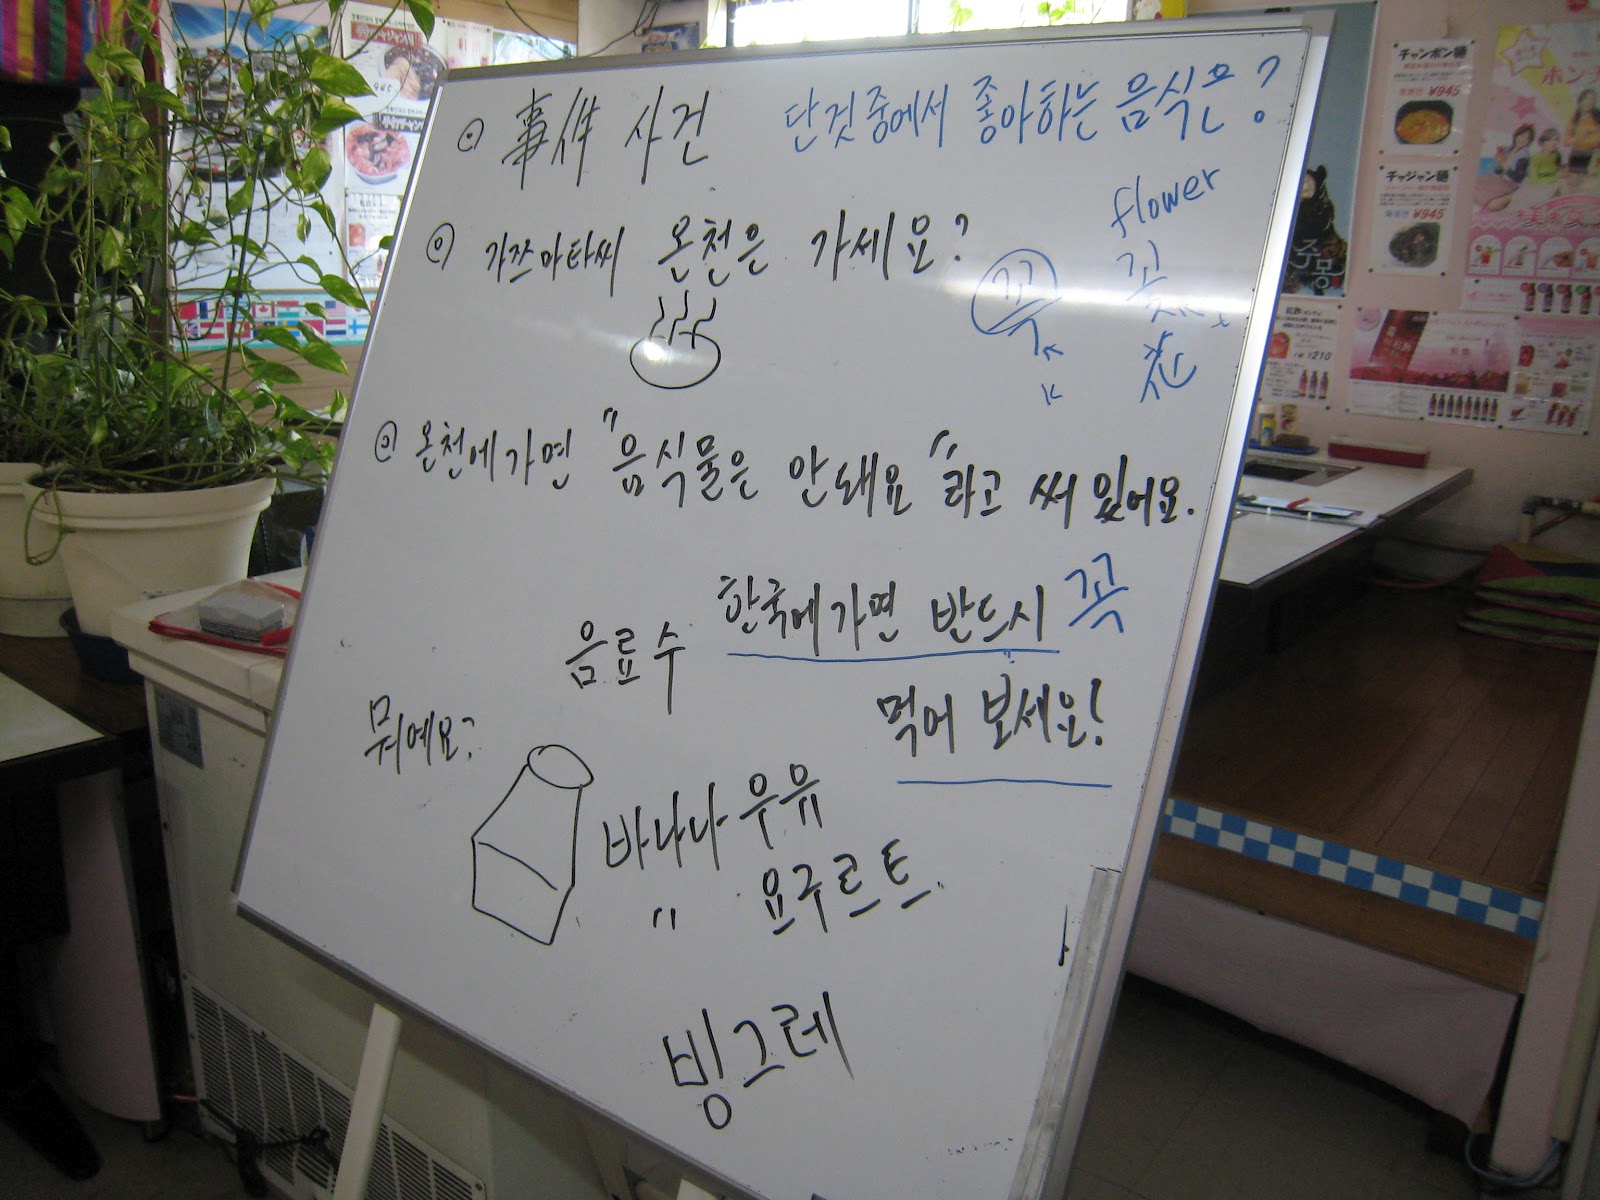 事件 사건 단것중에서 좋아하는 음식은?
flower
가쯔마타씨 온천은 가세요?
꼭
꽃
花
온천에가면 "음식물은 안돼요"라고 써 있어요.
한국에가면 반드시 꼭
음료수
먹어 보세요!
뭐예요?
바나나 우유
" 요구르트
빙그레
チャンポン麺
¥945
チャジャン麺
¥945
주몽
¥210